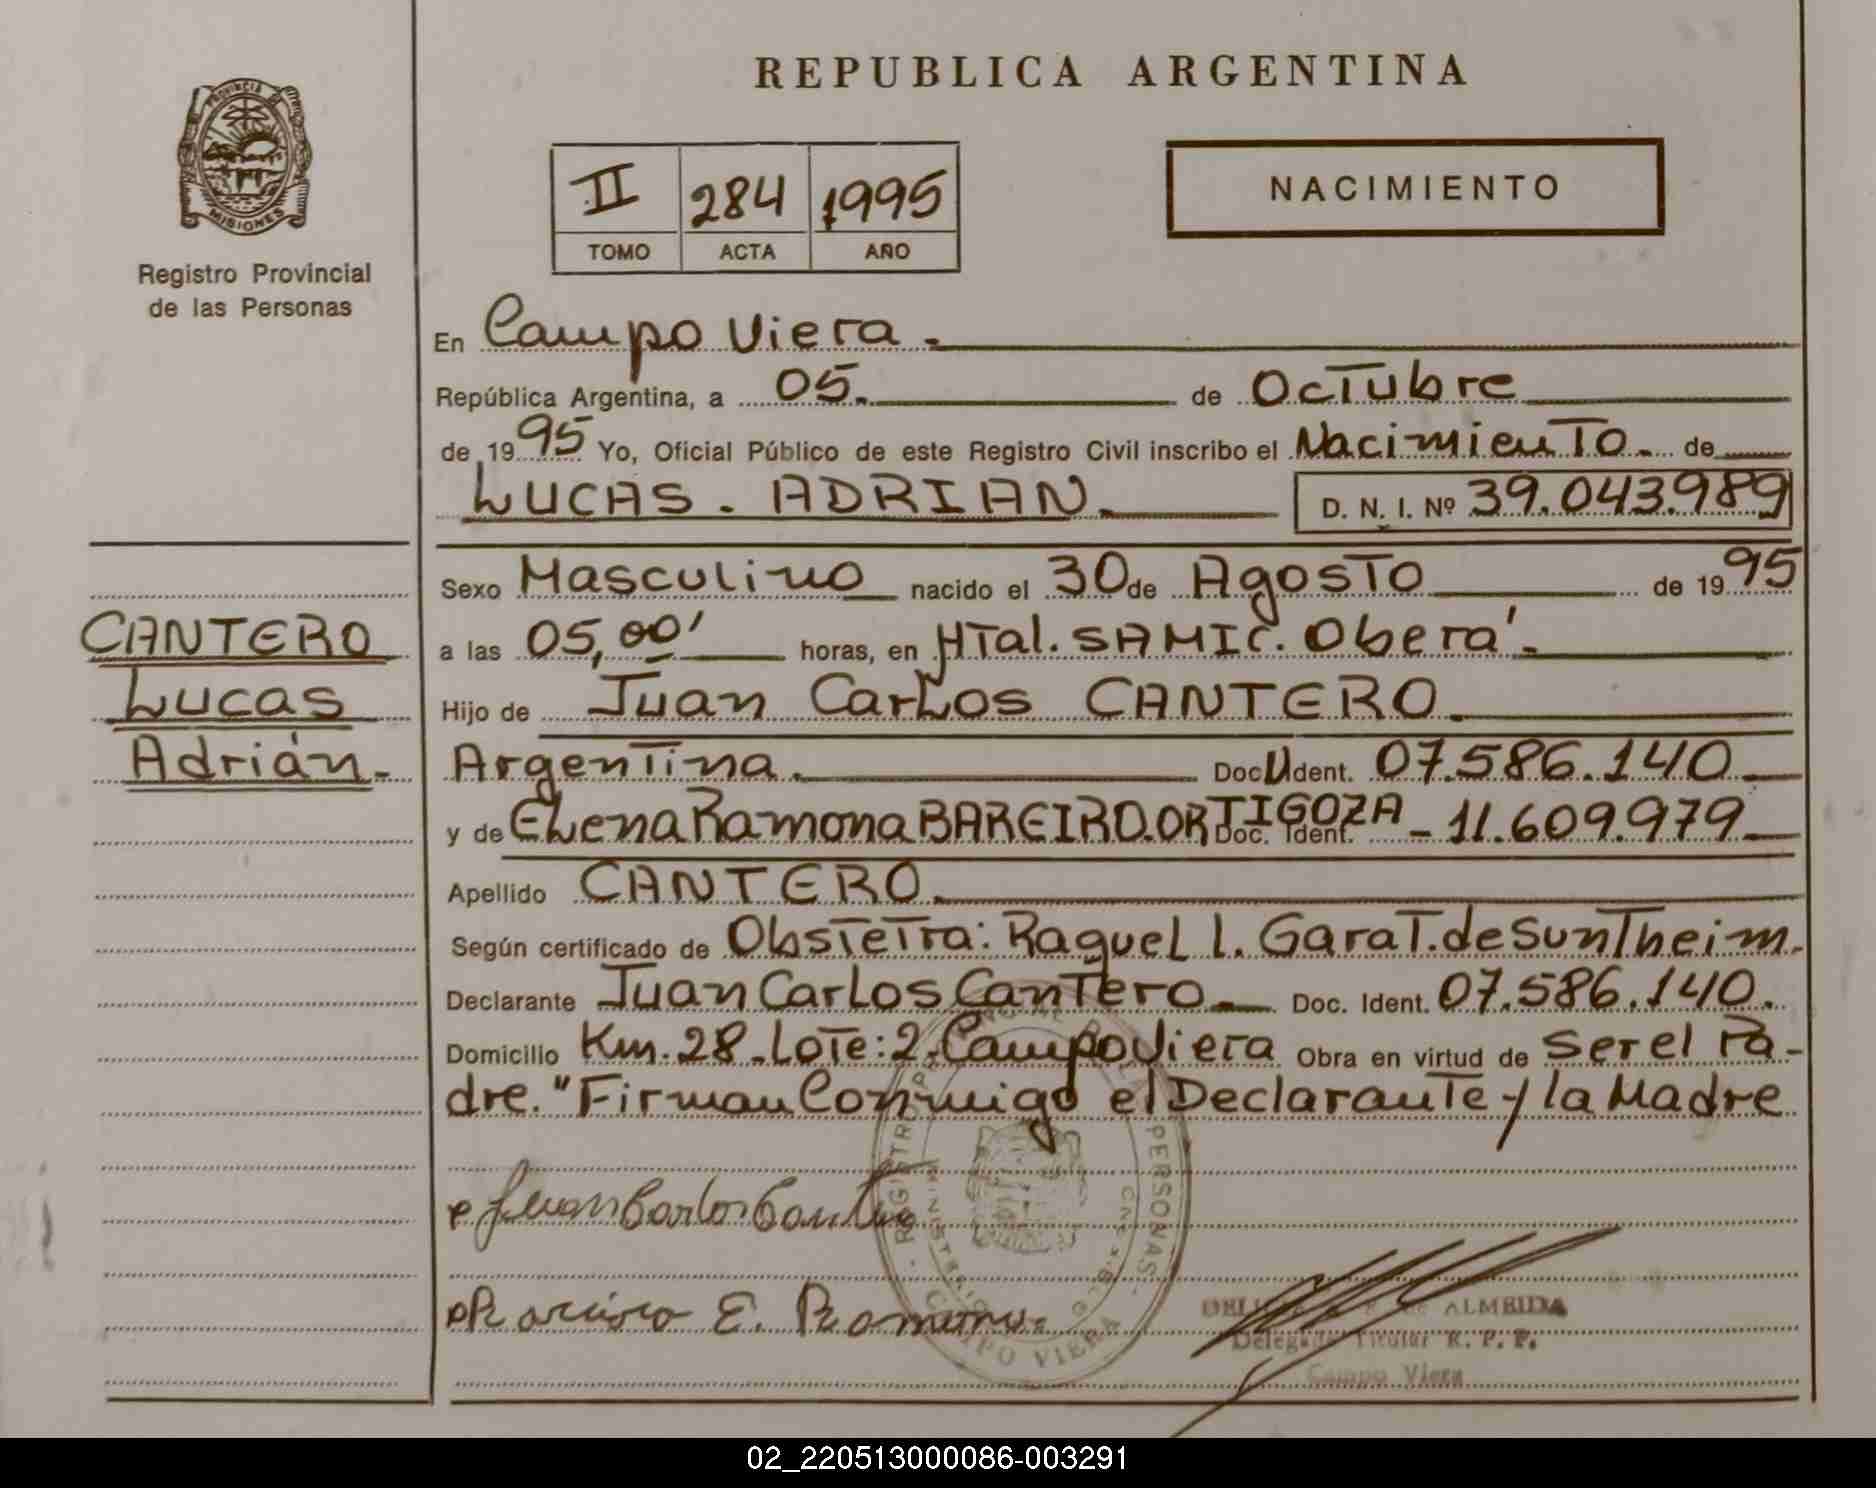 REPUBLICA ARGENTINA
PROVINCIA DE
MISIONES
Registro Provincial
de las Personas
II 284 1995
TOMO ACTA AÑO
NACIMIENTO
En Campo Viera.
República Argentina, a 05. de Octubre
de 1995 Yo, Oficial Público de este Registro Civil inscribo el Nacimiento. de
LUCAS. ADRIAN. D. N. I. Nº 39.043.989
CANTERO
Lucas
Adrián.
Sexo Masculino nacido el 30 de Agosto de 1995
a las 05,00' horas, en HTal. SAMIC. Oberá.
Hijo de Juan Carlos CANTERO.
Argentina. Doc. Ident. 07.586.140
y de Elena Ramona BAREIRO.ORTIGOZA Doc. Ident. - 11.609.979
Apellido CANTERO.
Según certificado de Obstetra: Raquel l. Garat. de Suntheim.
Declarante Juan Carlos Cantero. Doc. Ident. 07.586.140.
Domicilio Km. 28. Lote: 2. Campo Viera Obra en virtud de ser el Pa-
dre. "Firman Conmigo el Declarante y la Madre
Juan Carlos Cantero
E.
REGISTRO PROVINCIAL DE LAS PERSONAS
MINISTERIO
CAMPO VIERA
de ALMEIDA
Titular R. P. P.
Campo Viera
02_220513000086-003291